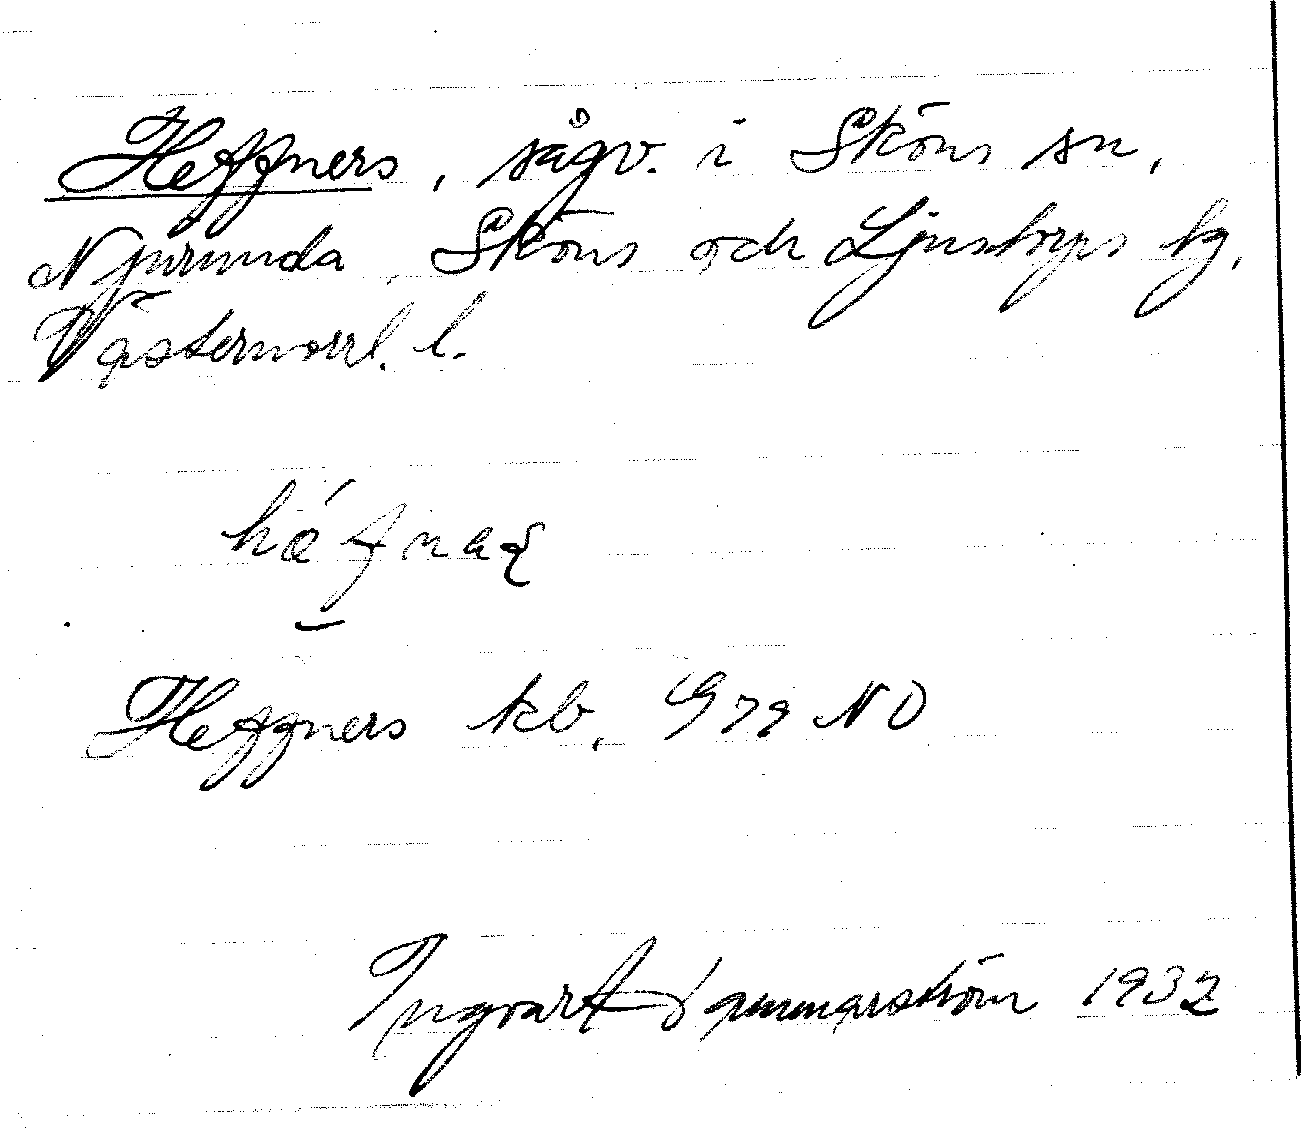 Heffners, sågv. i Sköns sn,
Njurunda, Sköns och Ljustorps tg,
Västernorrl. l.
Heffners kb. G79 NO
Ingvart 1932